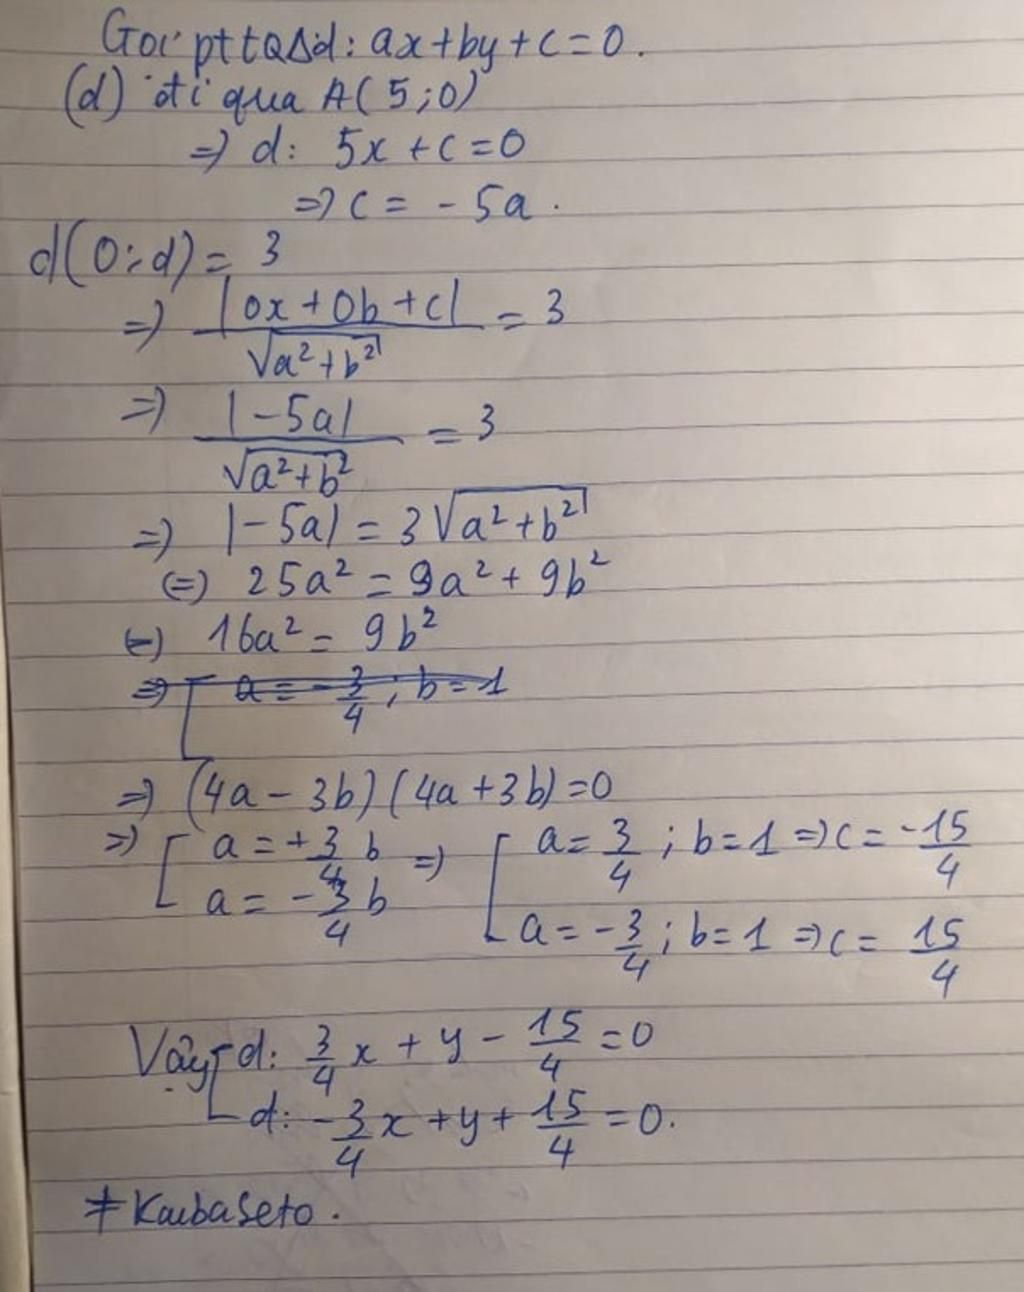 Gọi pttQΔd: ax+by+c=0.
(d) đi qua A(5;0)
=> d: 5x+c=0
=> c = -5a.
d(O;d) = 3
=> |0x+0b+c| / √(a²+b²) = 3
=> |-5a| / √(a²+b²) = 3
=> |-5a| = 3√(a²+b²)
(=) 25a² = 9a² + 9b²
(=) 16a² = 9b²
=> [ a = -3/4; b=1
=> (4a-3b)(4a+3b)=0
=> [ a = +3/4 b => [ a = 3/4; b=1 => c = -15/4
a = -3/4 b a = -3/4; b=1 => c = 15/4
Vậy [ d: 3/4 x + y - 15/4 = 0
d: -3/4 x + y + 15/4 = 0.
≠Kaibaseto.